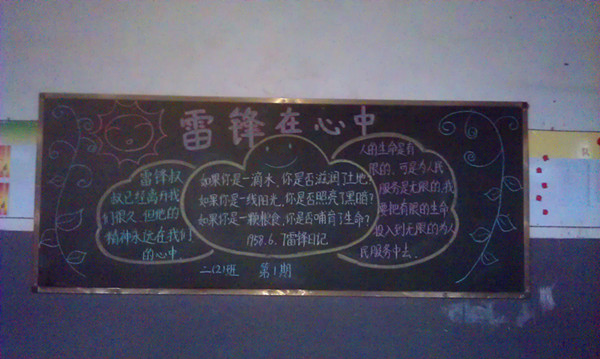 雷锋在心中
雷锋叔
叔已经离开我
们很久,但他的
精神永远在我们
的心中.
如果你是一滴水,你是否滋润了土地?
如果你是一线阳光,你是否照亮了黑暗?
如果你是一颗粮食,你是否哺育了生命?
1958.6.7雷锋日记
人的生命是有
限的、可是为人民
服务是无限的,我
要把有限的生命
投入到无限的为人
民服务中去.
二(2)班 第1期